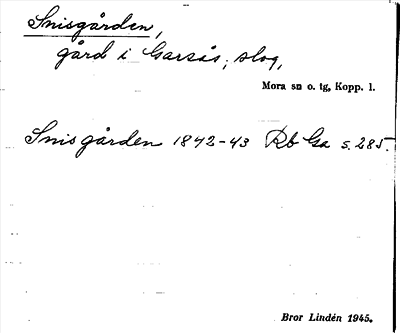 Snisgården,
gård i Garsås, slog,
Mora sn o. tg, Kopp. l.
Snisgården 1842-43 Rb Ga s. 285.
Bror Lindén 1945.